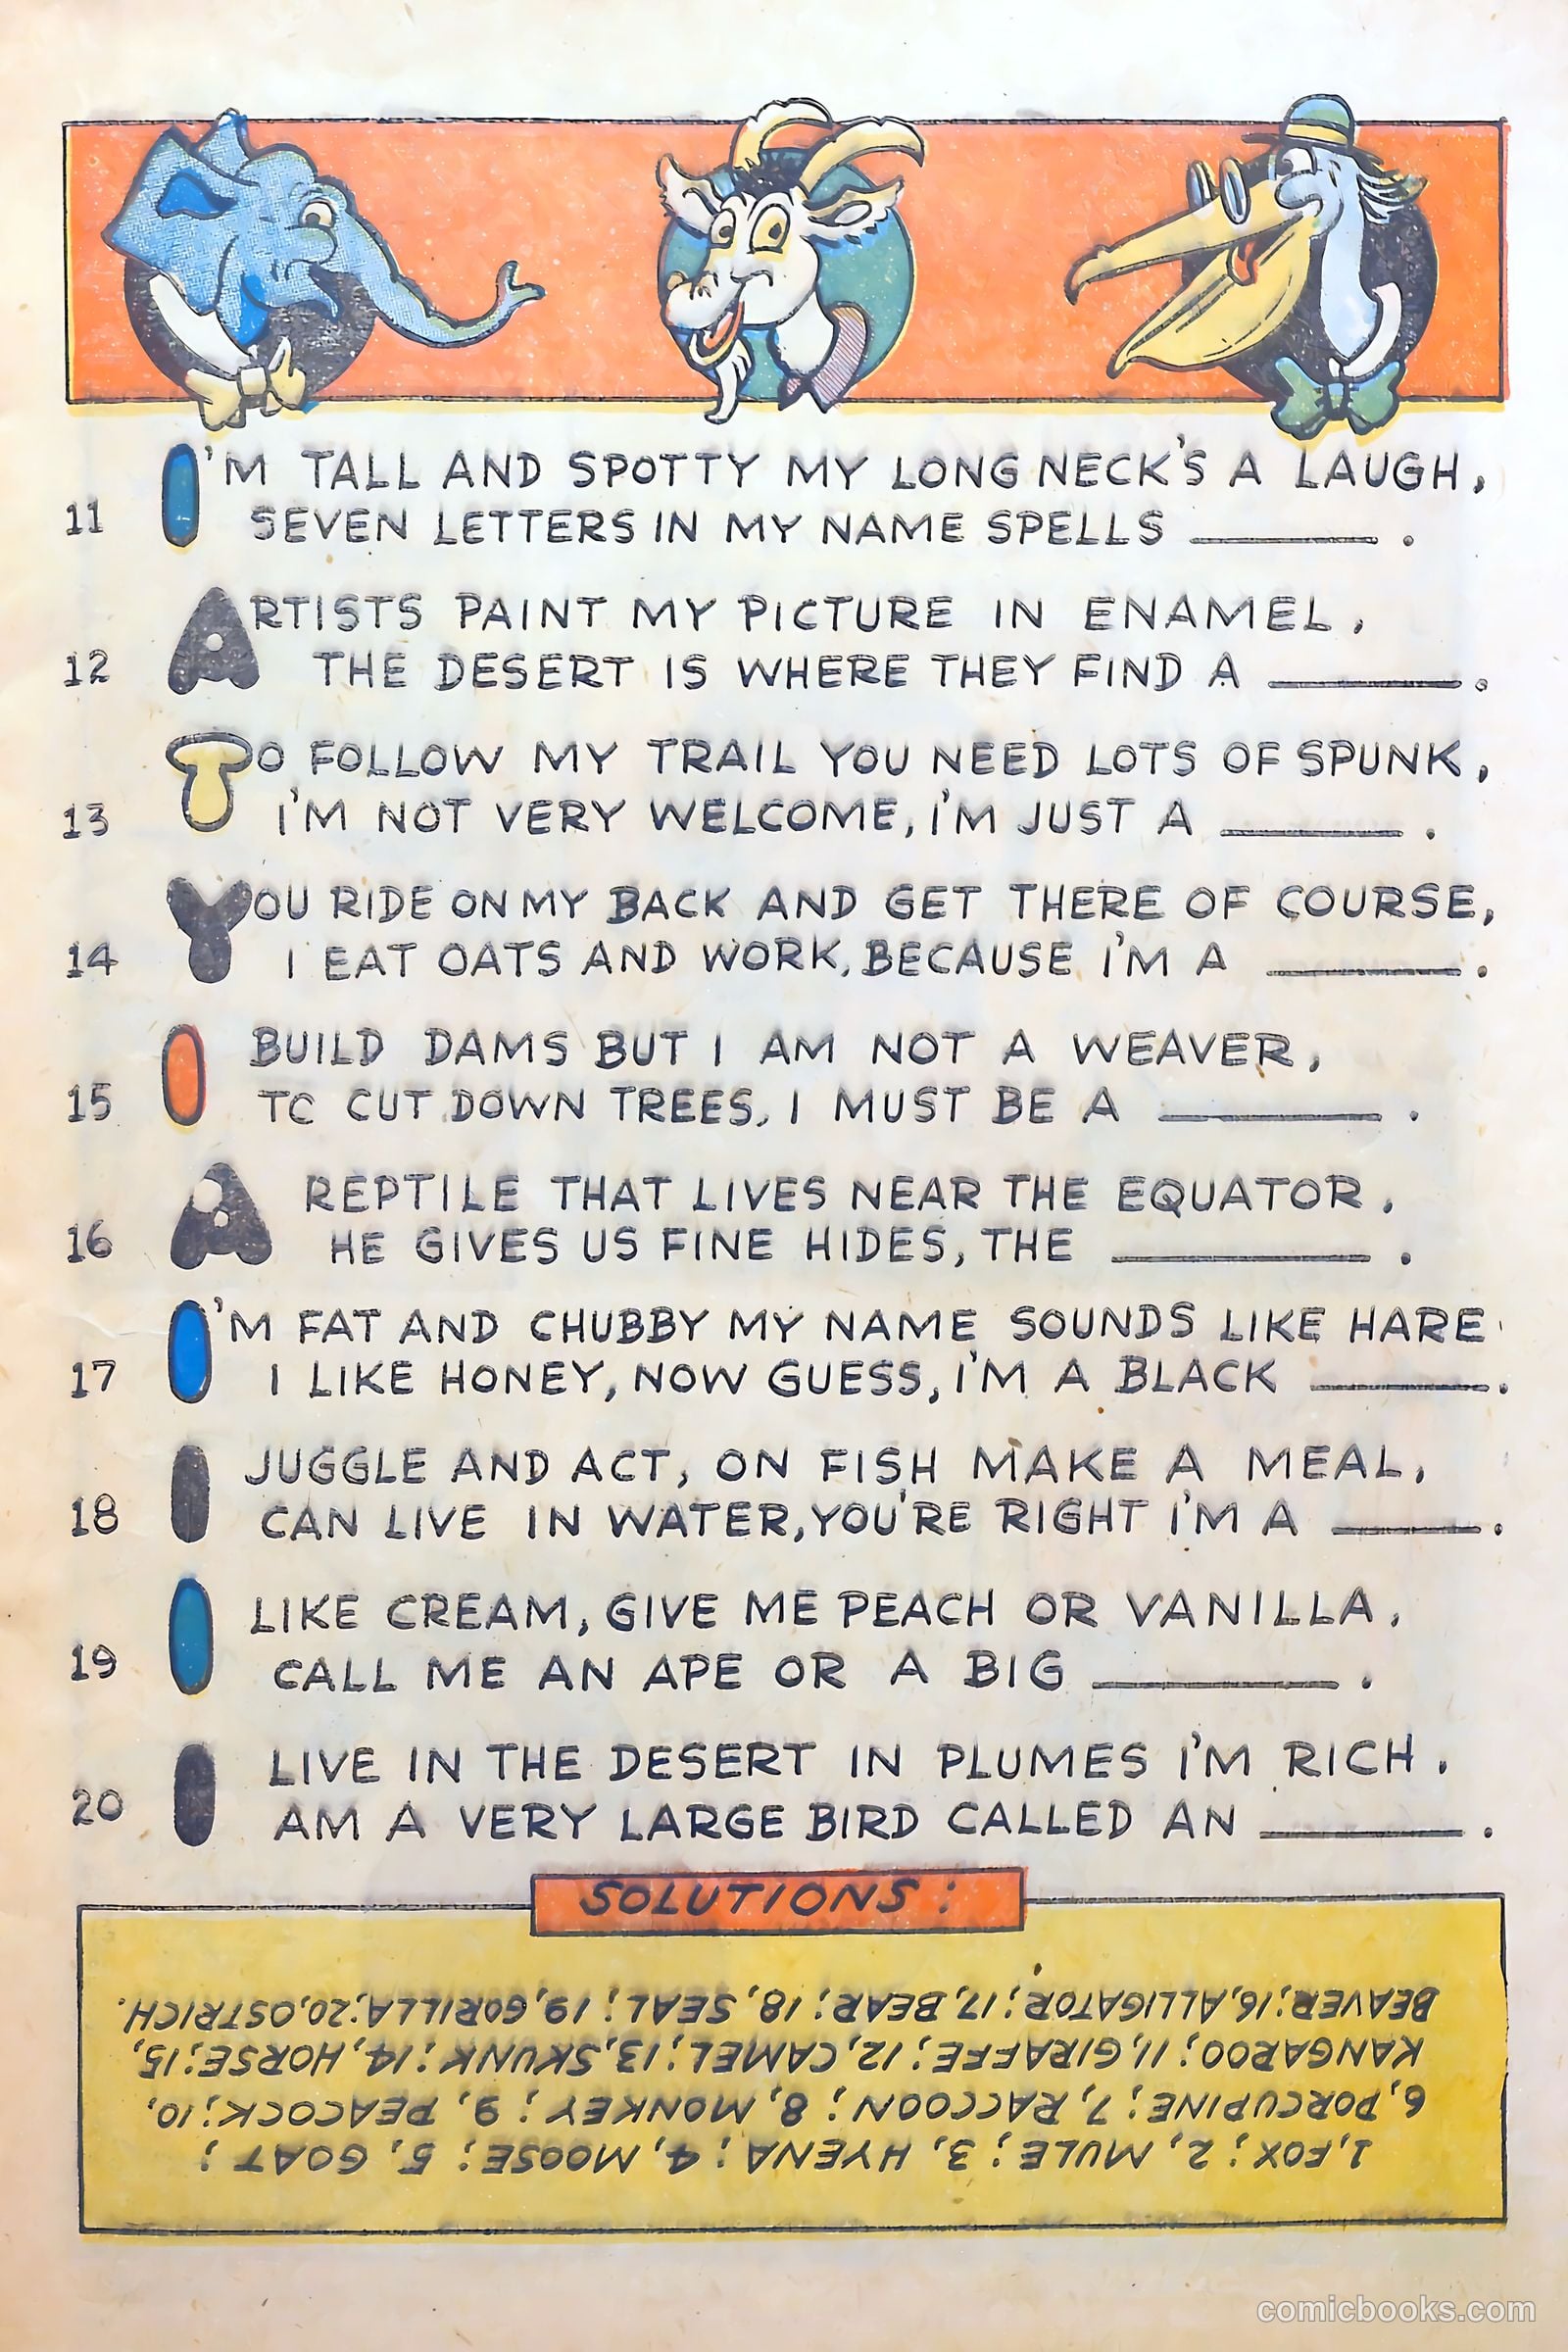 11 I'M TALL AND SPOTTY MY LONG NECK'S A LAUGH,
SEVEN LETTERS IN MY NAME SPELLS ______.
12 ARTISTS PAINT MY PICTURE IN ENAMEL,
THE DESERT IS WHERE THEY FIND A ______.
13 TO FOLLOW MY TRAIL YOU NEED LOTS OF SPUNK,
I'M NOT VERY WELCOME, I'M JUST A ______.
14 YOU RIDE ON MY BACK AND GET THERE OF COURSE,
I EAT OATS AND WORK, BECAUSE I'M A ______.
15 I BUILD DAMS BUT I AM NOT A WEAVER,
TO CUT DOWN TREES, I MUST BE A ______.
16 A REPTILE THAT LIVES NEAR THE EQUATOR,
HE GIVES US FINE HIDES, THE ______.
17 I'M FAT AND CHUBBY MY NAME SOUNDS LIKE HARE
I LIKE HONEY, NOW GUESS, I'M A BLACK ______.
18 I JUGGLE AND ACT, ON FISH MAKE A MEAL,
CAN LIVE IN WATER, YOU'RE RIGHT I'M A ______.
19 I LIKE CREAM, GIVE ME PEACH OR VANILLA,
CALL ME AN APE OR A BIG ______.
20 I LIVE IN THE DESERT IN PLUMES I'M RICH.
AM A VERY LARGE BIRD CALLED AN ______.
SOLUTIONS:
1, FOX; 2, MULE; 3, HYENA; 4, MOOSE; 5, GOAT;
6, PORCUPINE; 7, RACCOON; 8, MONKEY; 9, PEACOCK; 10,
KANGAROO; 11, GIRAFFE; 12, CAMEL; 13, SKUNK; 14, HORSE; 15,
BEAVER; 16, ALLIGATOR; 17, BEAR; 18, SEAL; 19, GORILLA; 20, OSTRICH.
comicbooks.com